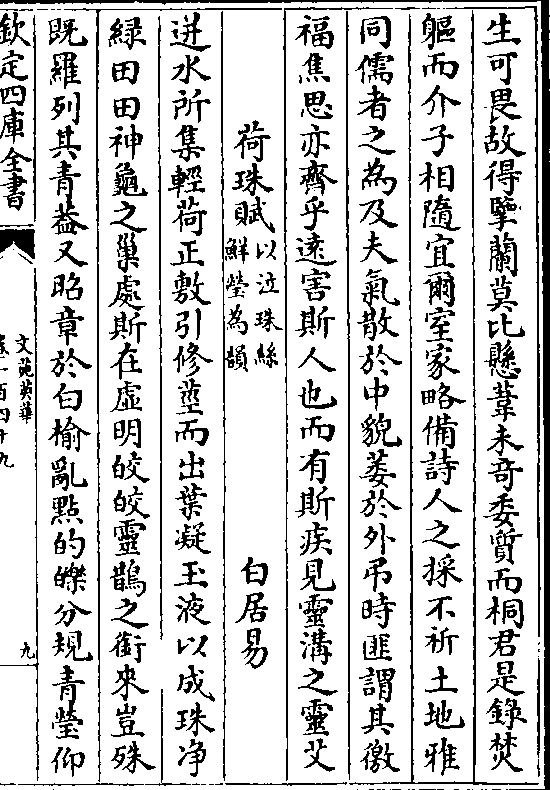 生可畏故得擥蘭莫比懸葦未竒委質而桐君是錄焚
軀而介子相隨宜爾室家略備詩人之採不祈土地雅
同儒者之為及夫氣散於中貌萎於外弔時匪謂其徼
福焦思亦齊乎遠害斯人也而有斯疾見靈溝之靈艾
荷珠賦以泣珠絲鮮瑩為韻 白居易
迸水所集輕荷正敷引修莖而出葉凝玉液以成珠净
緑田田神龜之巢處斯在虛明皎皎靈鵲之銜來豈殊
既羅列其青葢又昭章於白榆亂點的皪分規青瑩仰
欽定四庫全書
文苑英華
卷一百四十九
九